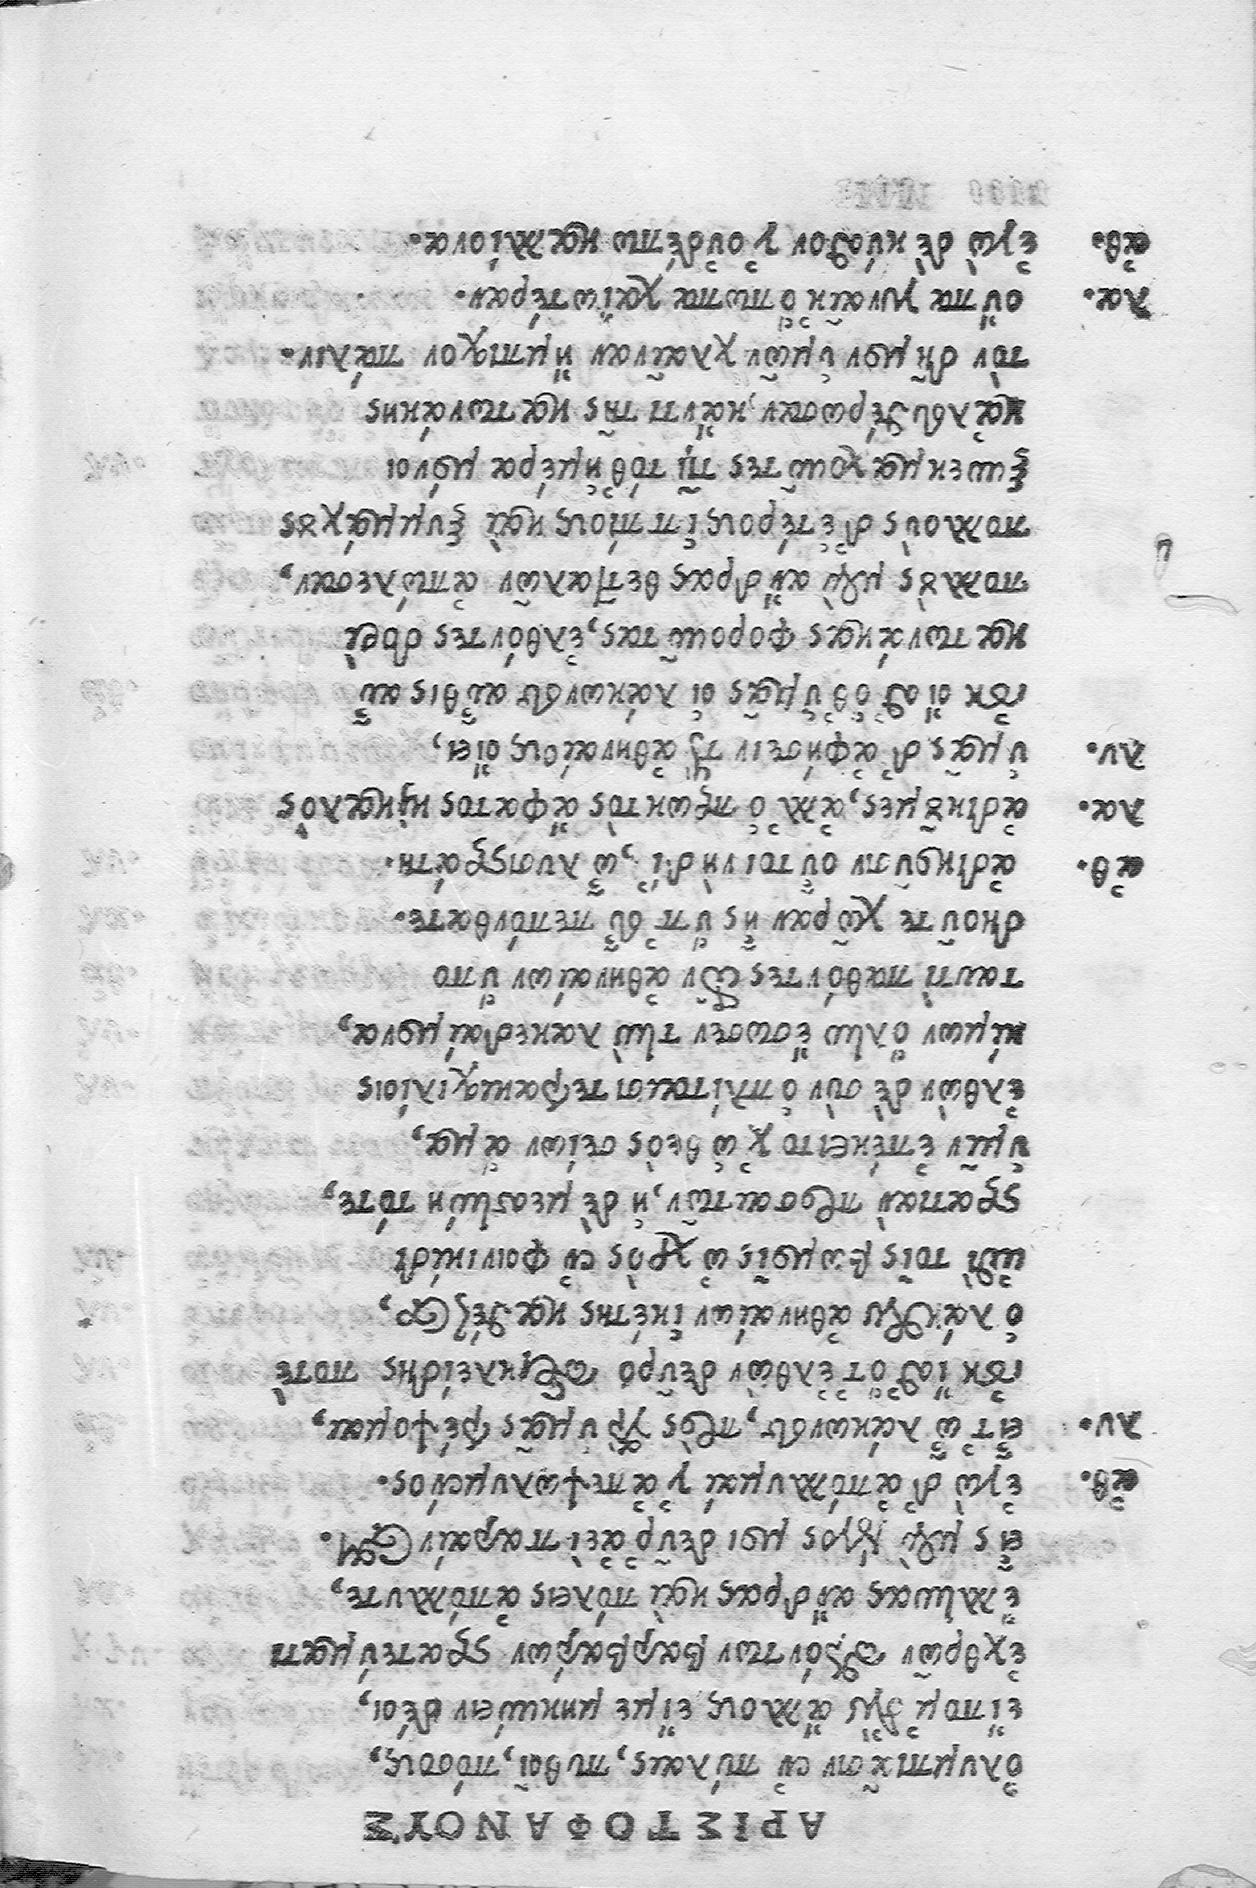 ΑΡΙΣΤΟΦΑΝΟΥΣ
ὀλυμπιᾶσιν ἐν πύλαις, πυθοῖ, πόσους,
εἴποιμ᾽ ἂν ἄλλους εἴ με μηκύνειν δέοι,
ἐχθρῶν παρόντων βαρβάρων στρατεύματι
ἕλληνας ἄνδρας καὶ πόλεις ἀπόλλυτε,
εἷς μὲν λόγος μοι δεῦρ᾽ ἀεὶ περαίνεται.
ἀθ. ἐγὼ δ᾽ ἀπόλλυμαί γ᾽ ἀπεψωλυμένος.
λυ. εἶτ᾽ ὦ λάκωνες, πρὸς γὰρ ὑμᾶς τρέψομαι,
οὐκ ἴσθ᾽ ὅτ᾽ ἐλθὼν δεῦρο περικλείδης ποτὲ
ὁ λάκων ἀθηναίων ἱκέτης καθέζετο,
ἐπὶ τοῖς βωμοῖς ὠχρὸς ἐν φοινικίδι
στρατιὰν προσαιτῶν, ἡ δὲ μεσσήνη τότε,
ὑμῖν ἐπέκειτο χ᾽ ὠ θεὸς σείων ἅμα,
ἐλθὼν δὲ σὺν ὁπλίταισι τετρακισχιλίοις
κίμων ὅλην ἔσωσεν τὴν λακεδαίμονα,
ταυτὶ παθόντες τῶν ἀθηναίων ὕπο
δηοῦτε χῶραν ἧς ὕπ᾽ εὖ πεπόνθατε.
ἀθ. ἀδικοῦσιν οὗτοι νὴ δί᾽, ὦ λυσιστράτη.
λα. ἀδικοῦμες, ἀλλ᾽ ὁ πρωκτὸς ἄφατος κὴ καλὸς
λυ. ὑμᾶς δ᾽ ἀφήσειν τοὺς ἀθηναίους οἴει,
οὐκ οἴσθ᾽ ὅθ᾽ ὑμᾶς οἱ λάκωνες αὖθις αὖ
κατωνάκας φοροῦντας, ἐλθόντες δορὶ
πολλοὺς μὲν ἄνδρας θετταλῶν ἀπώλεσαν,
πολλοὺς δ᾽ ἑτέρους ἱππίους καὶ ξυμμάχους
ξυνεκμαχοῦντες τῇ τόθ᾽ ἡμέρα μόνοι
κἀλευθέρωσαν, κἀντὶ τῆς κατωνάκης
τὸν δῆμον ὑμῶν χλαῖναν ἤμπισχον πάλιν.
λα. οὔπα γυναῖκ᾽ ὄπωπα χαϊωτέραν.
ἀθ. ἐγὼ δὲ κύσθον γ᾽ οὐδέπω καλλίονα.